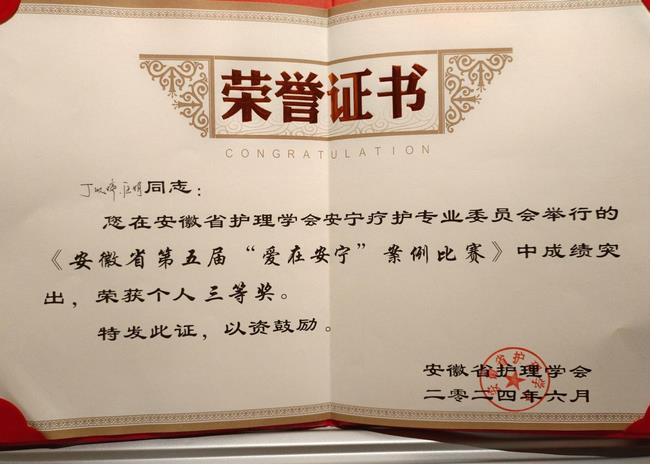 荣誉证书
CONGRATULATION
同志：
您在安徽省护理学会安宁疗护专业委员会举行的
《安徽省第五届“爱在安宁”案例比赛》中成绩突
出，荣获个人三等奖。
特发此证，以资鼓励。
安徽省护理学会
二零二四年六月